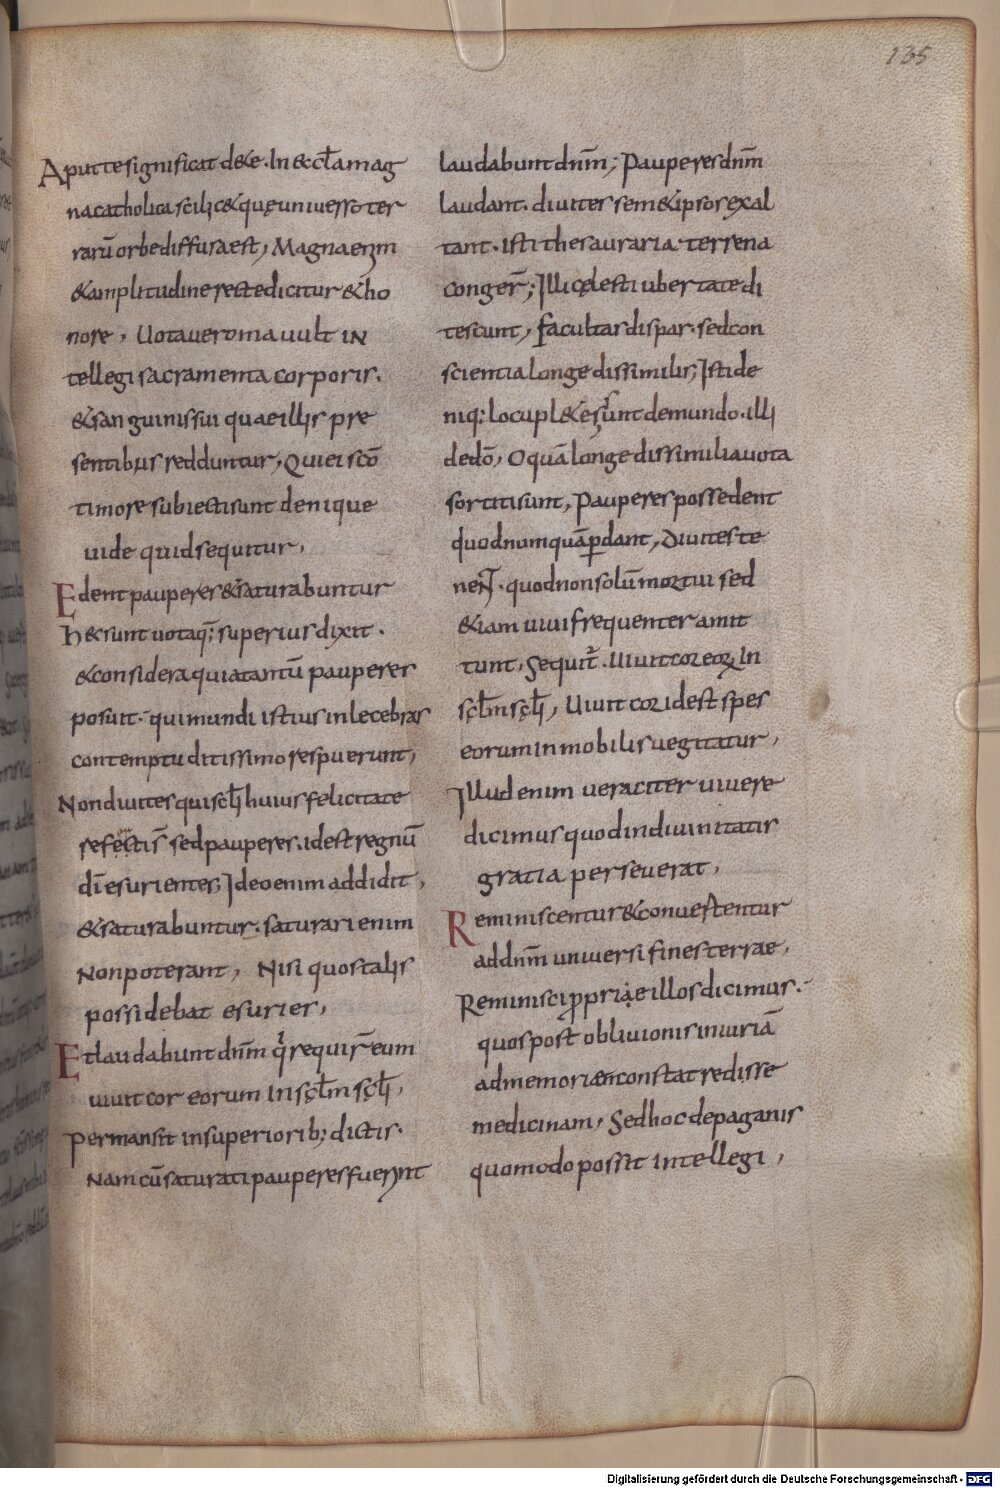 135
Aput te significat de te. In eccl̅a mag
na catholica scilic& quę uniuerso ter
rarū orbe diffusa est, Magna enim
& amplitudine recte dicitur & ho
nore, Uota uero ma uult in
tellegi sacramenta corporis.
& sanguinis sui quae illis pre
sentibus redduntur, Qui ei sc̄o
timore subiecti sunt denique
uide quid sequitur,
Edent pauperes & saturabuntur
h& sunt uota q; superius dixit.
& considera quia tantū pauperes
posuit. qui mundi istius inlecebras
contemptu ditissimo respuerunt,
Non diuites qui scl̅i huius felicitate
refectis sed pauperes. id est regnū
dī esurientes; Ideo enim addidit,
& saturabuntur. saturari enim
Non poterant, Nisi quos talis
possidebat esuries,
Et laudabunt dn̄m q̇ requir̄ eum
uiuit cor eorum in sęcl̅m sęcl̅i,
Permansit in superiorib; dictis.
Nam cū saturati pauperes fuerint
laudabunt dn̄m; Pauperes dn̄m
laudant. diuites sem&ipsos exal
tant. Isti thesauraria terrena
conger̄; Illi cęlesti ubertate di
tescunt, facultas dispar. sed con
scientia longe dissimilis; Isti de
niq; locupl&es sunt de mundo. illi
de dō, O quā longe dissimilia uota
sortiti sunt, Pauperes possedent
quod numquā perdant, Diuites te
nent. quod non solū mortui sed
&iam uiui frequenter amit
tunt, Sequit̄. Uiuit cor eorum In
sęcl̅m sęcl̅i, Uiuit cor id est spes
eorum inmobilis uegitatur,
Illud enim ueraciter uiuere
dicimus quod in diuinitatis
gratia perseuerat,
Reminiscentur & conuertentur
ad dn̄m uniuersi fines terrae,
Reminisci propriae illos dicimus.
quos post obliuionis iniuriā
ad memoriam constat redisse
medicinam, Sed hoc de paganis
quomodo possit intellegi,
Digitalisierung gefördert durch die Deutsche Forschungsgemeinschaft - DFG